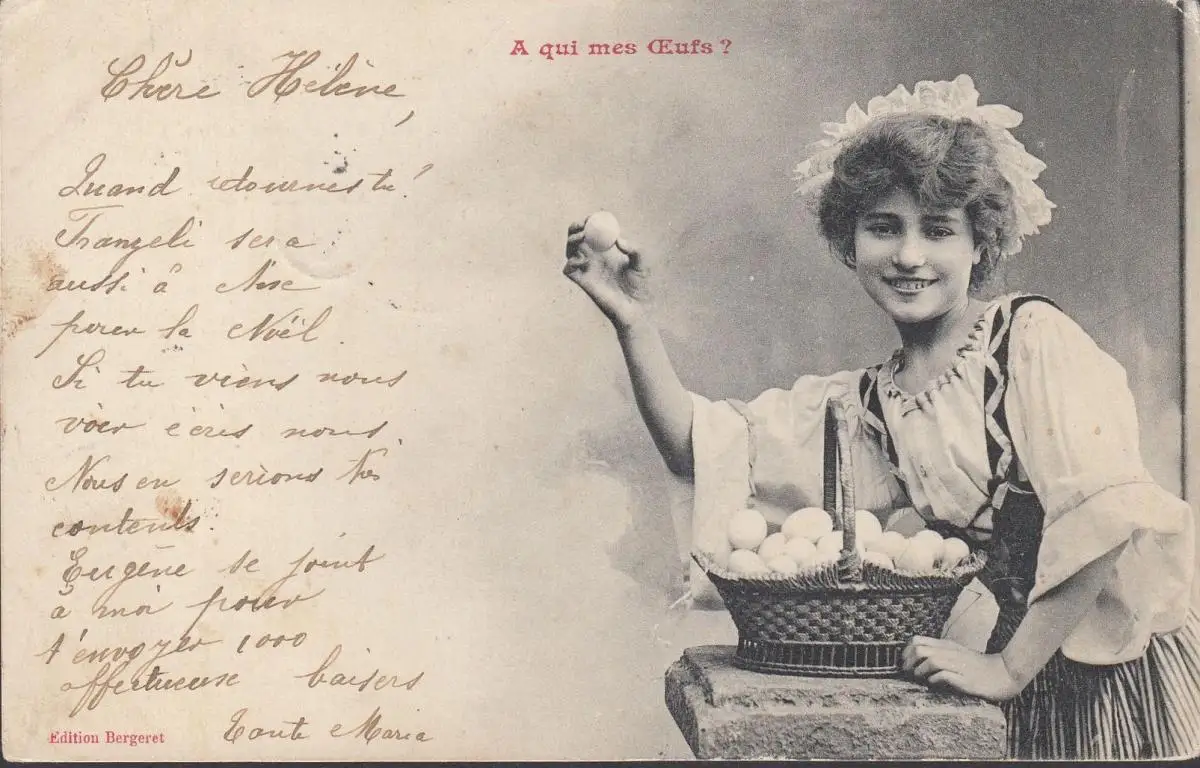 A qui mes Œufs ?
Chère Hélène,
Quand retournes tu?
Franzeli sera
aussi à Nice
pour la Noël.
Si tu viens nous
voir écris nous.
Nous en serions très
contents.
Eugène se joint
à moi pour
t'envoyer 1000
affectueuse baisers
Tante Maria
Edition Bergeret